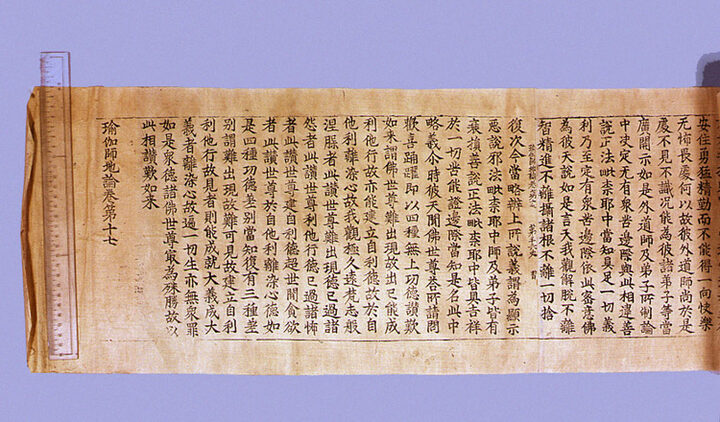 安住勇猛精勤而不能得一向快樂
无怖畏處何以故彼外道師尚於是
處不見不識況能為彼諸弟子等當
廣開示如是外道師及弟子所制論
中決定无有衆苦邊際與此相違善
說正法毗柰耶中當知具足一切義
利乃至定有衆苦邊際依此密意佛
為彼天說如是言天我觀解脫不離
智精進不離攝諸根不離一切捨
復次今當略辯上所說義謂為顯示
惡說法毗柰耶中師及弟子皆有
衰損善說正法毗柰耶中皆具吉祥
於一切苦能證邊際當知是名此中
略義尒時彼天聞佛世尊荅所請問
歡喜踊躍即以四種無上功德讚歎
如來謂佛世尊難出現故出已能成
利他行故亦能建立自利德故於自
他利離染心故我觀極久遠梵志般
涅槃者此讚世尊難出現德已過諸
怨者此讚世尊利他行德已過諸怖
者此讚世尊建立自利德超世間貪欲
者此讚世尊於自他利離染心德如
是四種功德差別當知復有三種差
別謂難出現故難可見故建立自利
利他行故見者則能成就大義成大
義者離染心故過一切生亦無衆罪
如是衆德諸佛世尊最為殊勝故以
此相讚歎如来
瑜伽師地論卷第十七